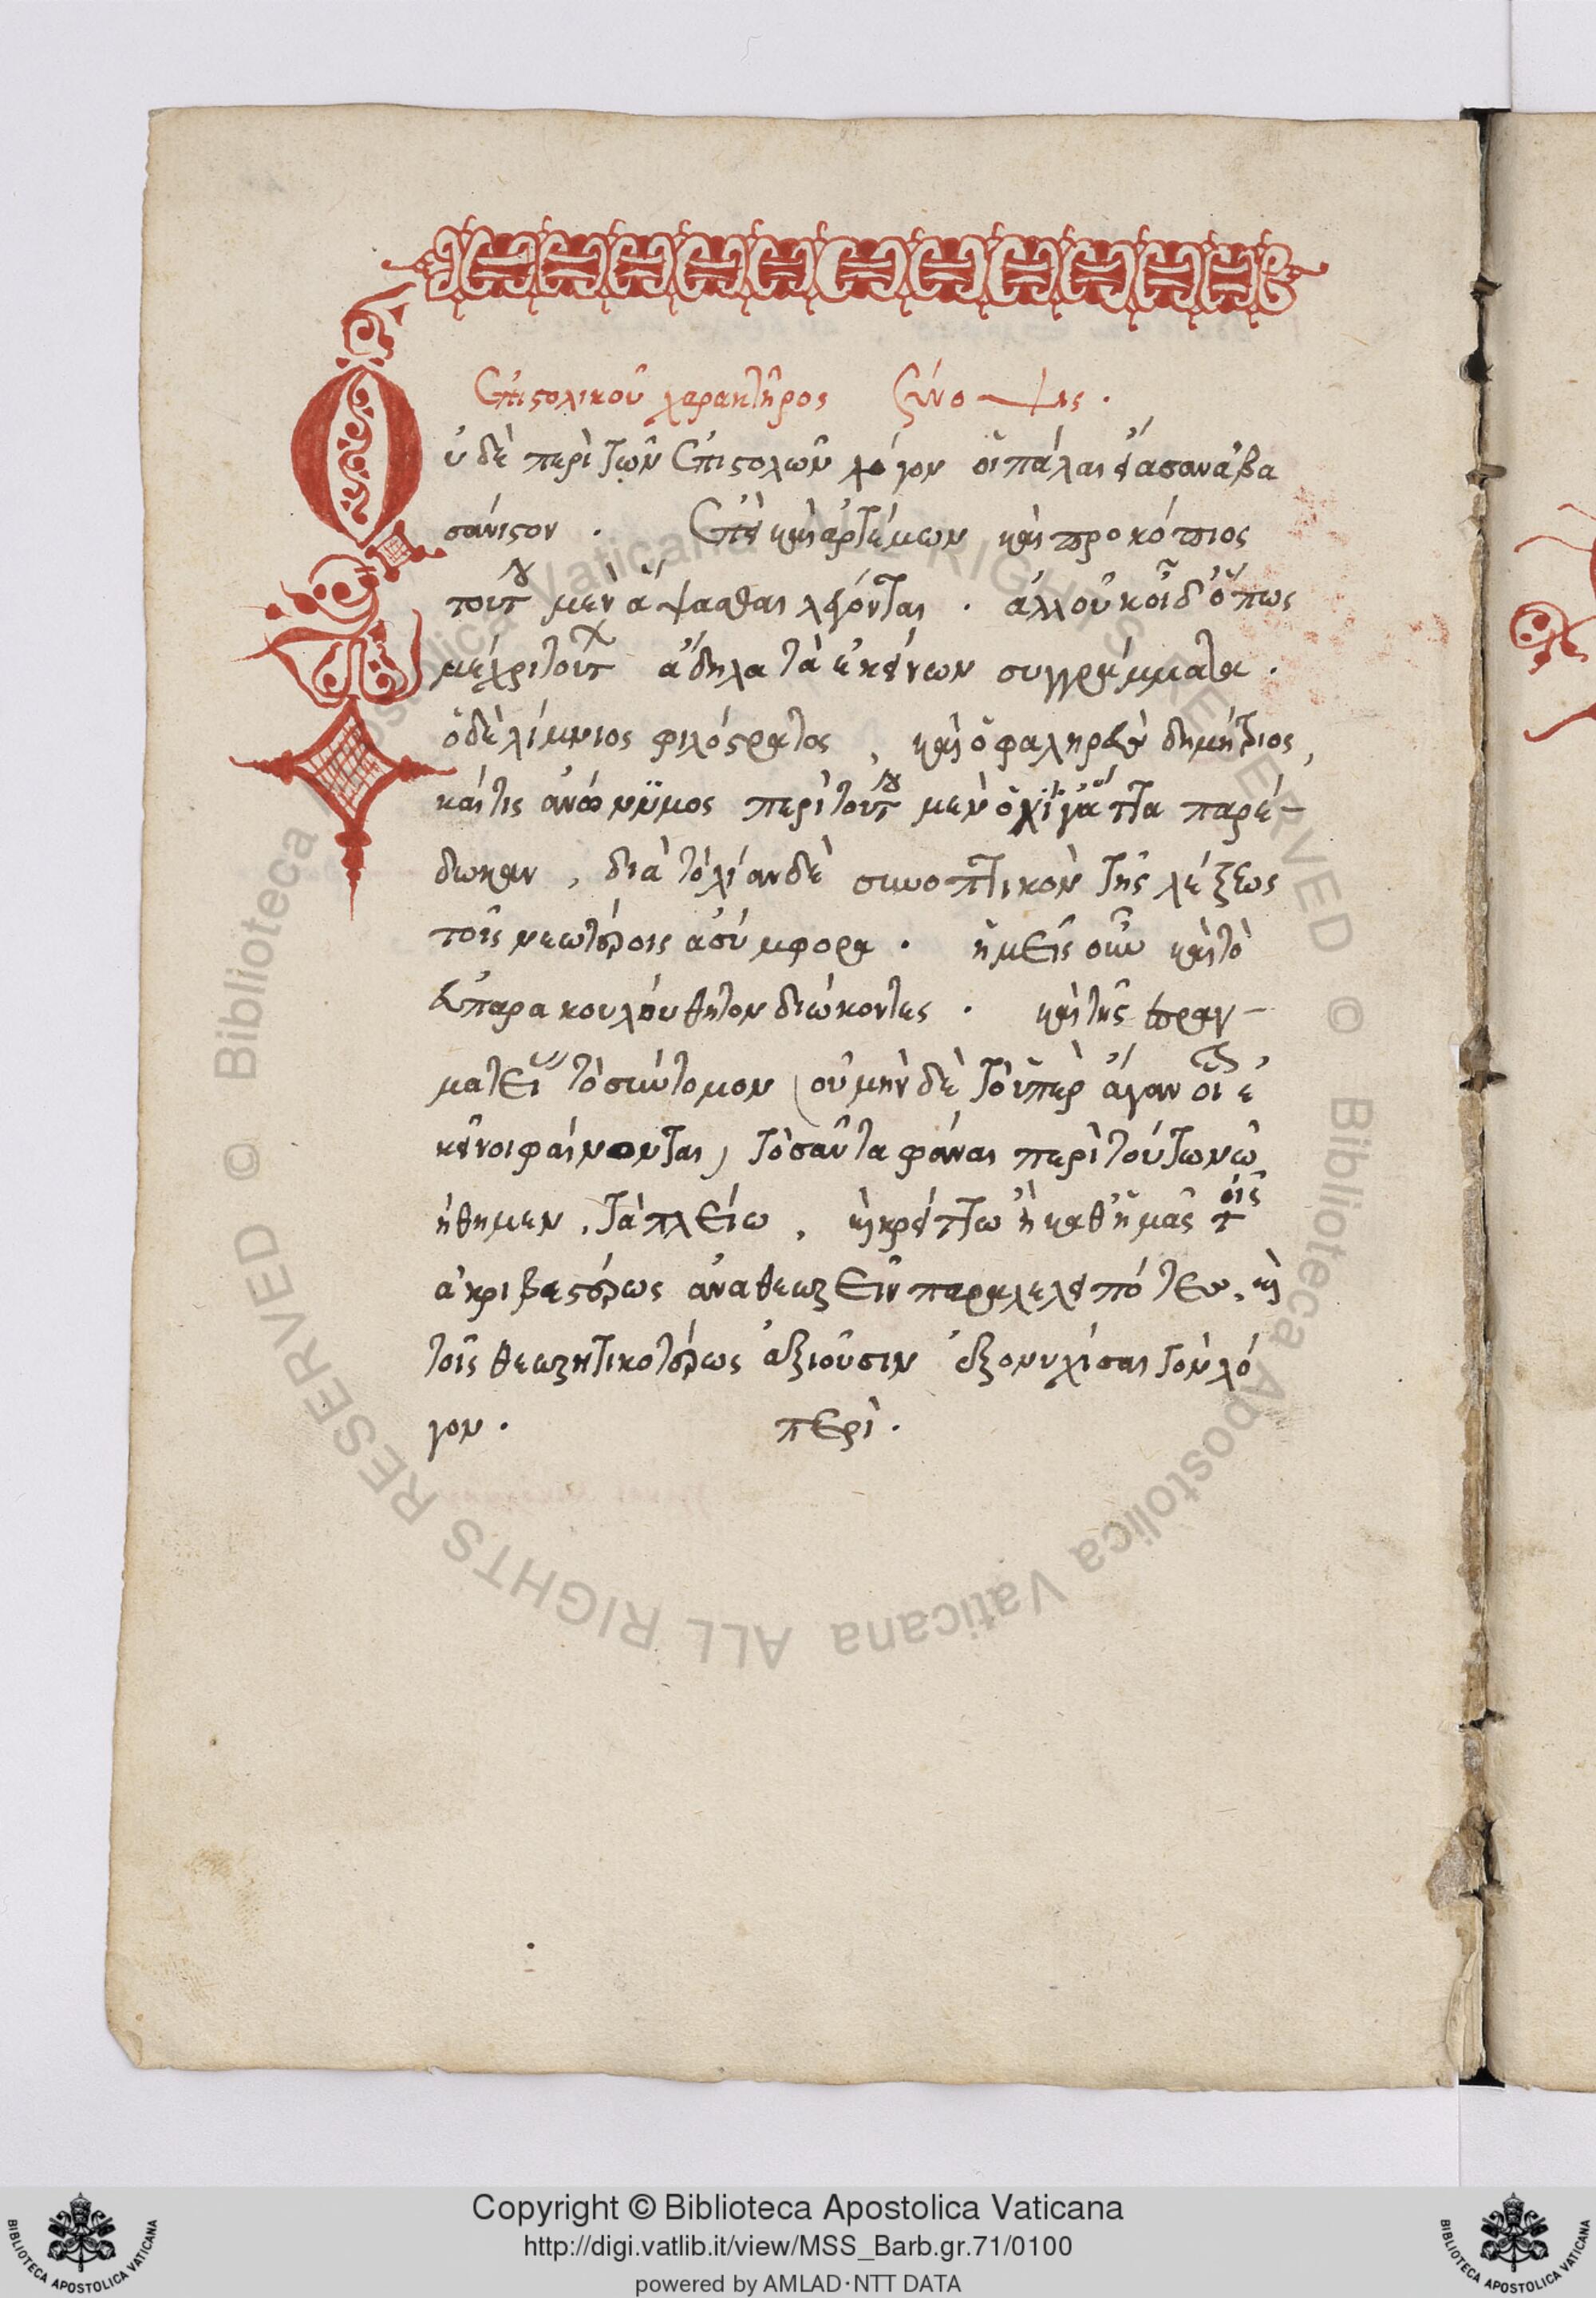 Ἐπιστολικοῦ χαρακτῆρος ζύνοψις.
Οὐδὲ περὶ τῶν ἐπιστολῶν λόγον οἱ πάλαι εἴασαν ἀβα
σάνιστον. ἐπεὶ καὶ ἀρτέμων καὶ προκόπιος
τούτου μὲν ἅψασθαι λέγονται. ἀλλ' οὐκ οἶδ' ὅπως
μέχρι τούτων ἄδηλα τὰ ἐκείνων συγγράμματα.
ὁ δὲ λίμνιος φιλόστρατος, καὶ ὁ φαληρεὺς δημήτριος,
καί τις ἀνώνυμος περὶ τούτου μὲν ὀλίγ' ἄττα παρέ-
δωκαν, διὰ τὸ λίαν δὲ συνοπτικὸν τῆς λέξεως
τοῖς νεωτέροις ἀσύμφορα. ἡμεῖς οὖν καὶ τὸ
εὐπαρακουλούθητον διώκοντες. καὶ τῆς πραγ-
ματείας τὸ σύντομον (οὐ μὴν δὲ τὸ ὑπὲρ ἄγαν οἷς ἐ
κεῖνοι φαίνονται) τὸσαῦτα φάναι περὶ τούτων ᾠ
ήθημεν. τὰ πλείω, καὶ κρείττω ἢ καθ' ἡμᾶς τοῖς
ἀκριβεστέρως ἀναθεωρεῖν παραλελειπότες, καὶ
τοῖς θεωρητικοτέρως ἀξιοῦσιν ἐξονυχίσαι τὸν λό
γον. περὶ.
Copyright © Biblioteca Apostolica Vaticana
http://digi.vatlib.it/view/MSS_Barb.gr.71/0100
powered by AMLAD·NTT DATA
BIBLIOTECA APOSTOLICA VATICANA
BIBLIOTECA APOSTOLICA VATICANA
© Biblioteca Apostolica Vaticana ALL RIGHTS RESERVED © Biblioteca Apostolica Vaticana ALL RIGHTS RESERVED